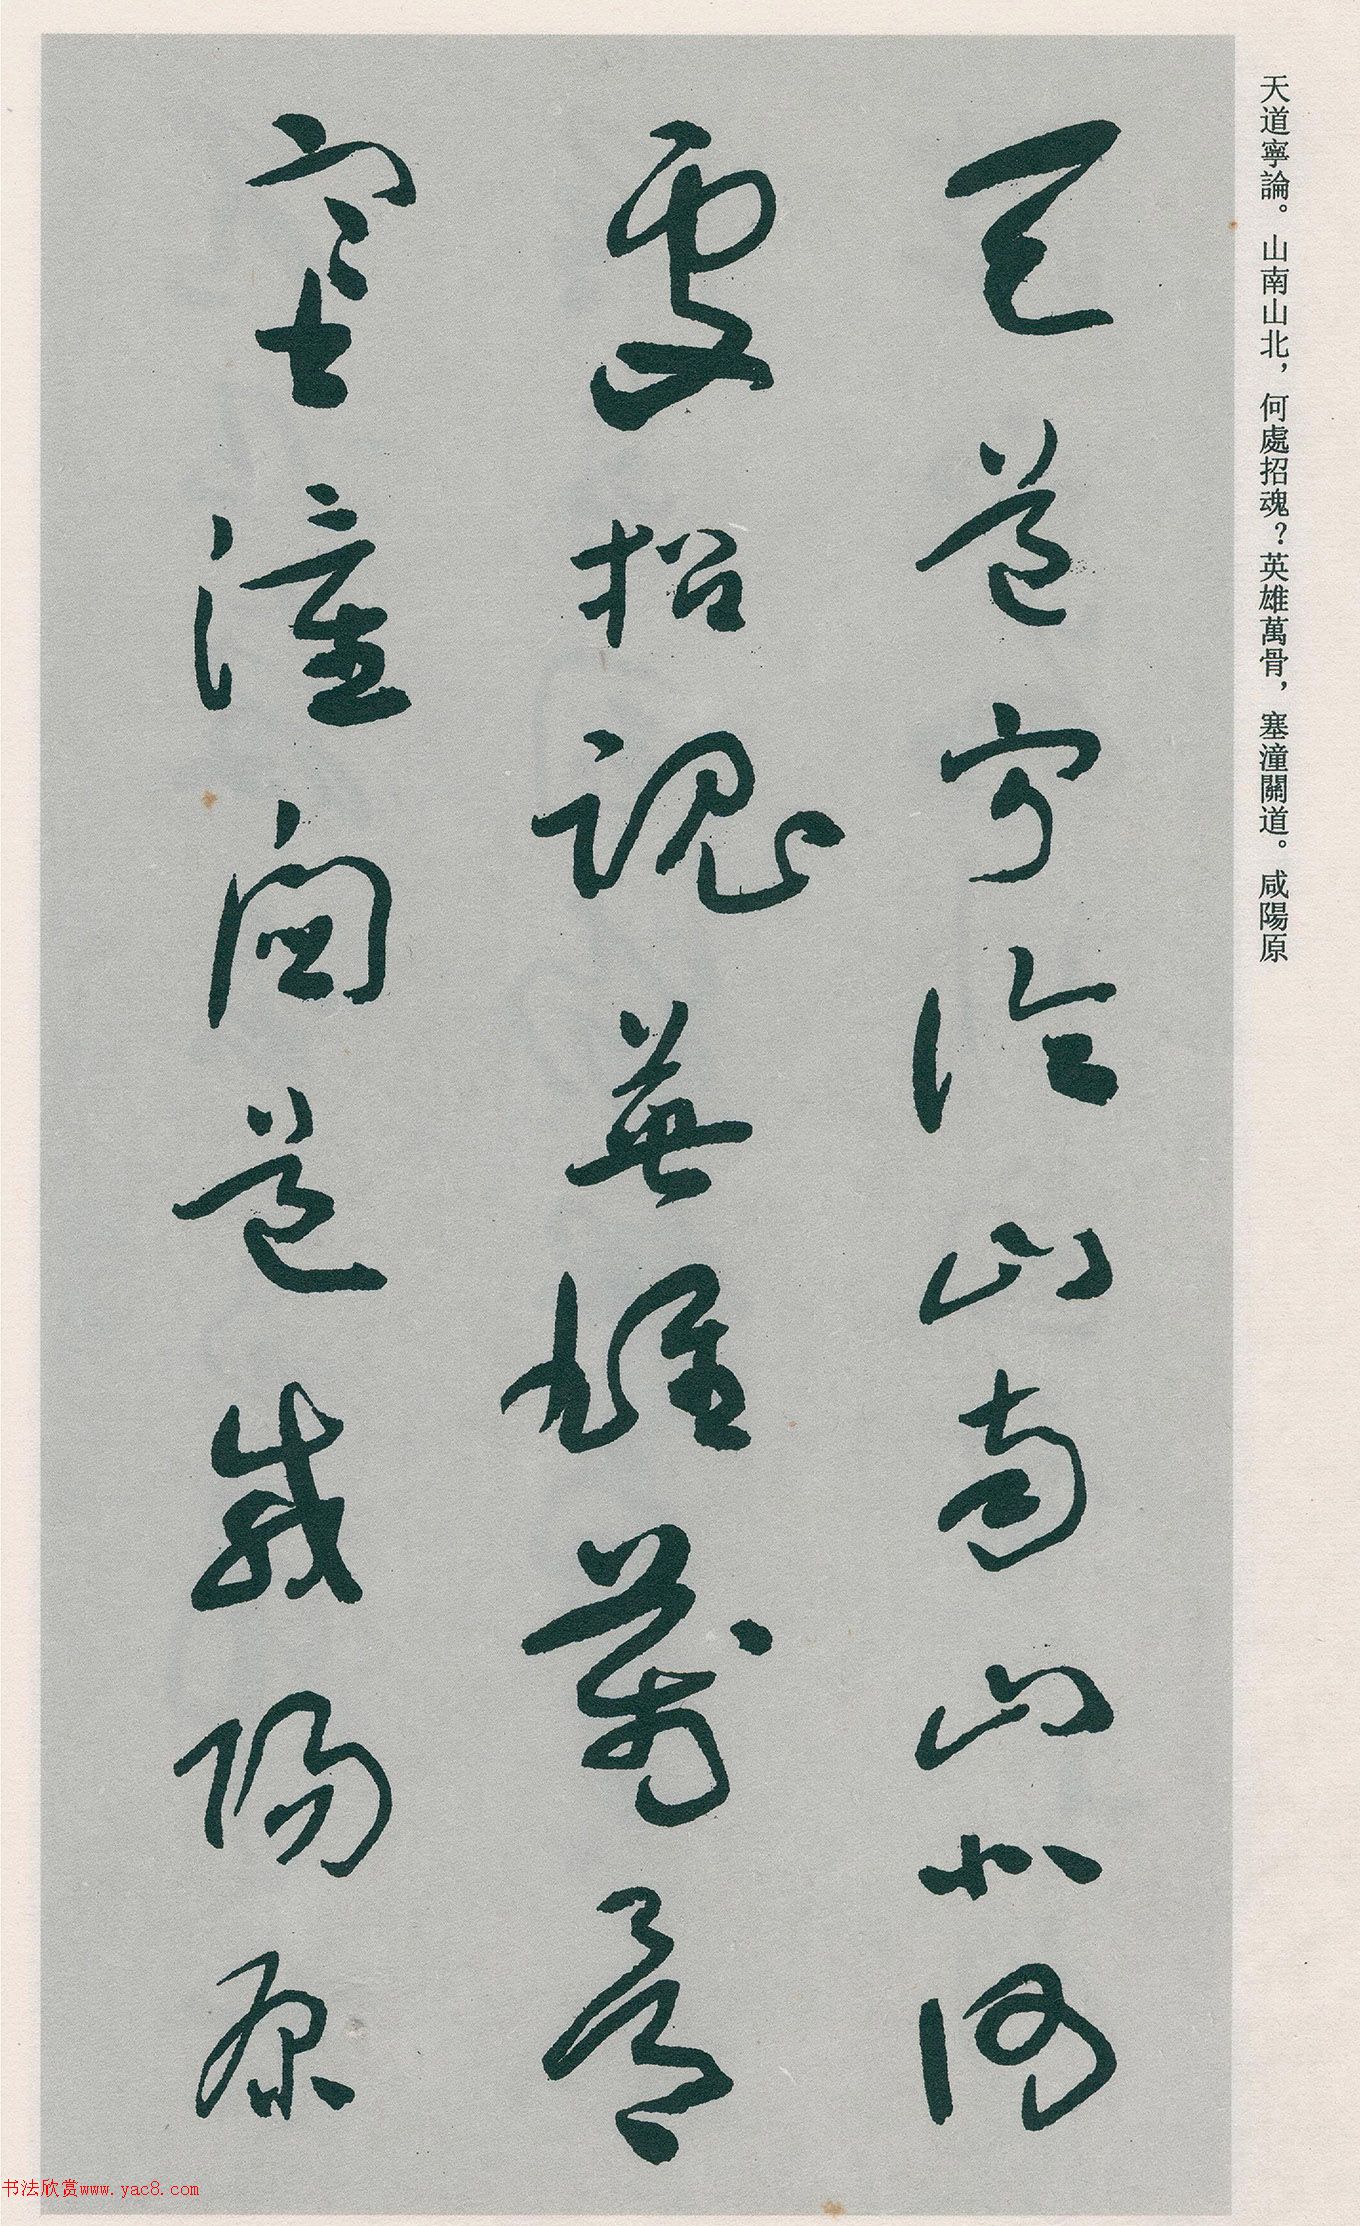 天道寧論。山南山北，何處招魂？英雄萬骨，塞潼關道。咸陽原
天道寧論山南山北何
處招魂英雄萬骨
塞潼關道咸陽原
书法欣赏www.yac8.com